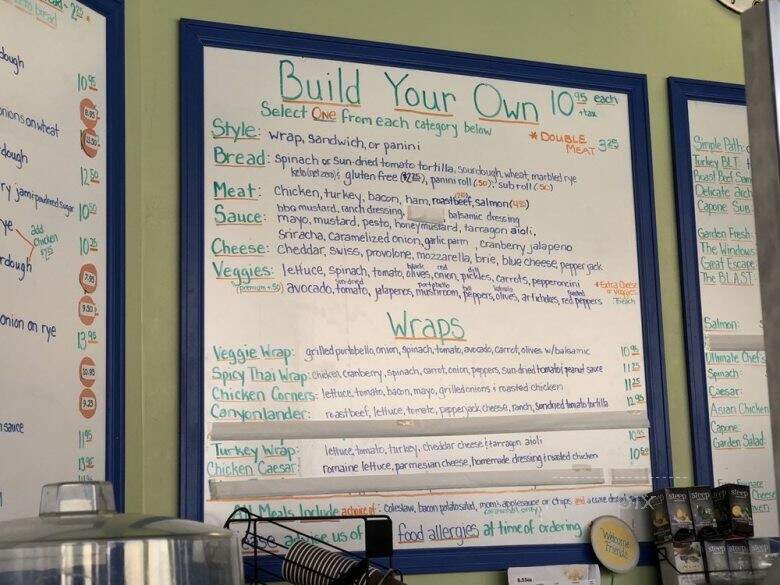 dough
onions on wheat
dough
ry jam + powdered sugar
rye
add chicken
rdough
onion on rye
sauce
10 95
8.95
12 50
10 50
10 25
7.95
9.50
13 95
10.95
9.25
11 95
13 95
11 95
Build Your Own 10 95 each
+tax
Select One from each category below
* DOUBLE MEAT 3 25
Style: wrap, sandwich, or panini
Bread: spinach or sun-dried tomato tortilla, sourdough, wheat, marbled rye
gluten free, panini roll (.50), sub roll (.50)
Meat: Chicken, turkey, bacon, ham, roastbeef, salmon
Sauce: bbq mustard, ranch dressing, balsamic dressing
mayo, mustard, pesto, honeymustard, tarragon aioli,
sriracha, caramelized onion, garlic parm, cranberry jalapeno
Cheese: cheddar, swiss, provolone, mozzarella, brie, blue cheese, pepper jack
Veggies: lettuce, spinach, tomato, black olives, red onion, dill pickles, carrots, pepperoncini
(premium +.50) avocado, sun-dried tomato, jalapenos, portobello mushroom, bell peppers, olives, artichokes, roasted red peppers
* Extra Cheese or Veggies .75 each
Wraps
Veggie Wrap: grilled portobello, onion, spinach, tomato, avocado, carrot, olives w/ balsamic 10 95
Spicy Thai Wrap: chicken, cranberry, spinach, carrot, onion, peppers, sun dried tomato/ peanut sauce 11 25
Chicken Corners: lettuce, tomato, bacon, mayo, grilled onions + roasted chicken 11 25
Canyonlander: roastbeef, lettuce, tomato, pepperjack cheese, ranch, sundried tomato tortilla 12 95
Turkey Wrap: lettuce, tomato, turkey, cheddar cheese + tarragon aioli 10 95
Chicken Caesar: romaine lettuce, parmesan cheese, homemade dressing + roasted chicken 10
All Meals Include a choice of: coleslaw, bacon potato salad, mom's applesauce or chips, and
advise us of food allergies at time of ordering
Welcome Friends
Simple Path:
Turkey BLT
Roast Beef
Delicate Arch
Capone Sub:
Garden Fresh
The Windows
Great Escape
The BLAST
Salmon:
Ultimate Chef's
Spinach:
Caesar:
Asian Chicken
Capone
Garden Salad
steep steep steep steep